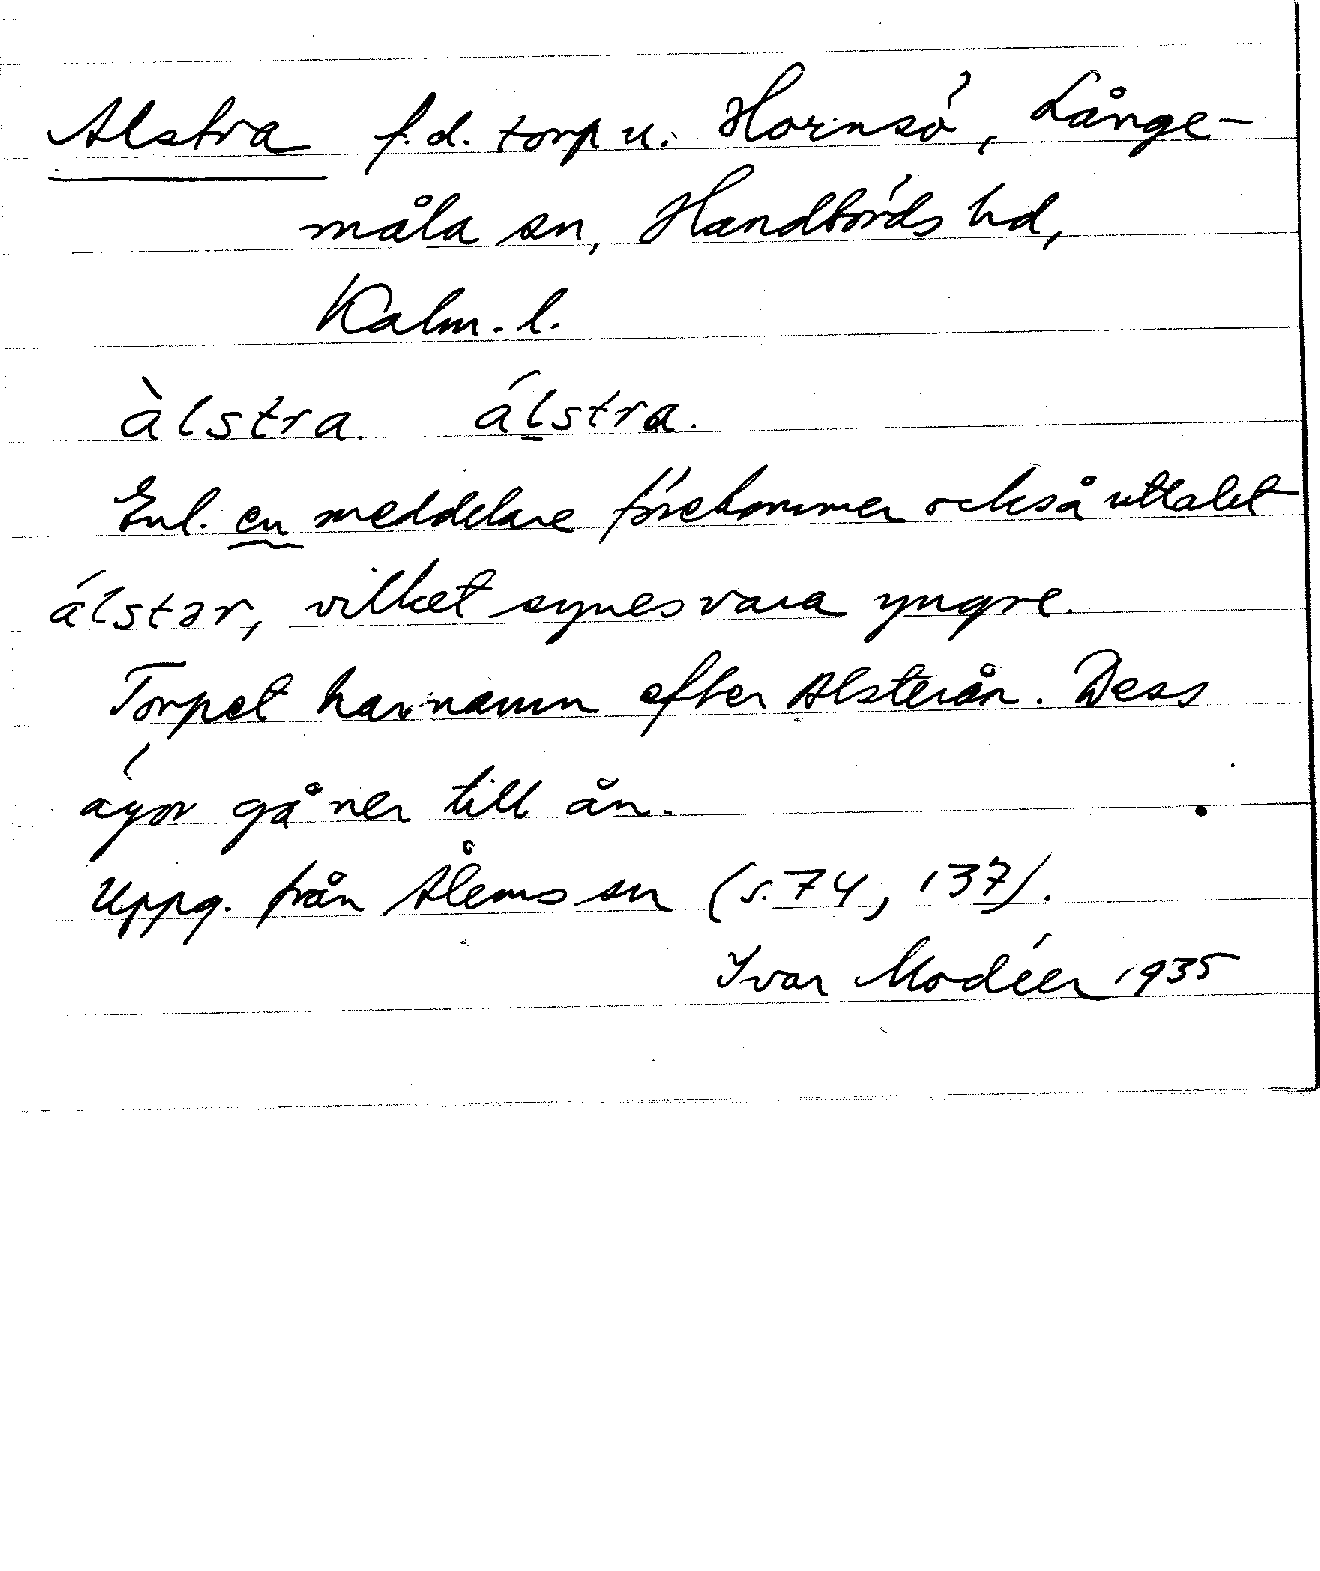 Alstra f.d. torp u. Hornsö, Långe-
måla sn, Handbörds hd,
Kalm. l.
àlstra. álstra.
Enl. en meddelare förekommer också uttalet
álstər, vilket synes vara yngre.
Torpet har namn efter Alsterån. Dess
ägor gå ner till ån.
Uppg. från Ålems sn (s. 74, 137).
Ivar Modéer 1935